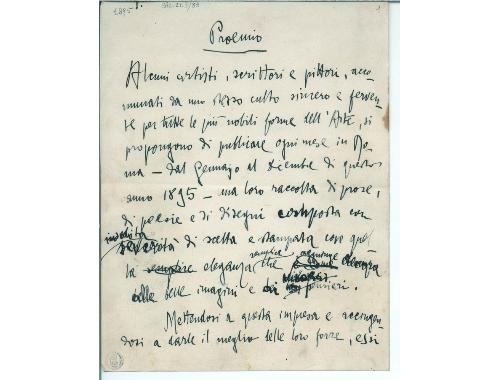 1895
1.
Proemio
Alcuni artisti, scrittori e pittori, acco-
munati da uno stesso culto sincero e ferven-
te per tutte le più nobili forme dell'Arte, si
propongono di publicare ogni mese in Ro-
ma — dal Gennajo al Dicembre di questo
anno 1895 — una loro raccolta di prose,
di poesie e di disegni composta con
inedita
severità di scelta e stampata con quel-
semplice aggiunge
la semplice eleganza che decoro
alle belle imagini e ai pensieri.
Mettendosi a questa impresa e accingen-
dosi a darle il meglio delle loro forze, essi